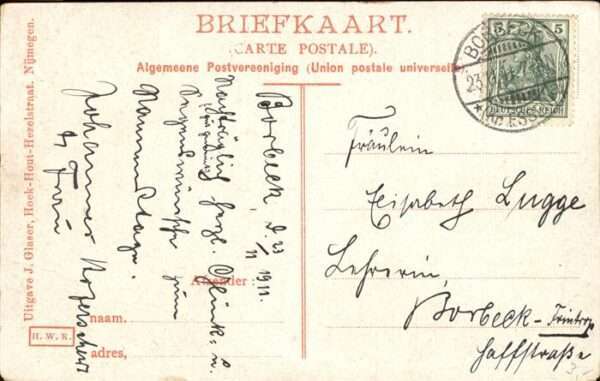 BRIEFKAART.
(CARTE POSTALE).
Algemeene Postvereeniging (Union postale universelle
BORBECK
23.
5
DEUTSCHES REICH
Borbeck, d. 23/11 1911.
Nachträglich herzl. Glück- u.
Segenswünsche zum
Namenstage.
Johannes
u Frau
Fräulein
Elisabeth Lugge
Lehrerin,
Borbeck-
Haffstraße
3,-
Afzender:
naam.
adres,
H. W. K.
Uitgave J. Glaser, Hoek-Hout-Hezelstraat. Nijmegen.